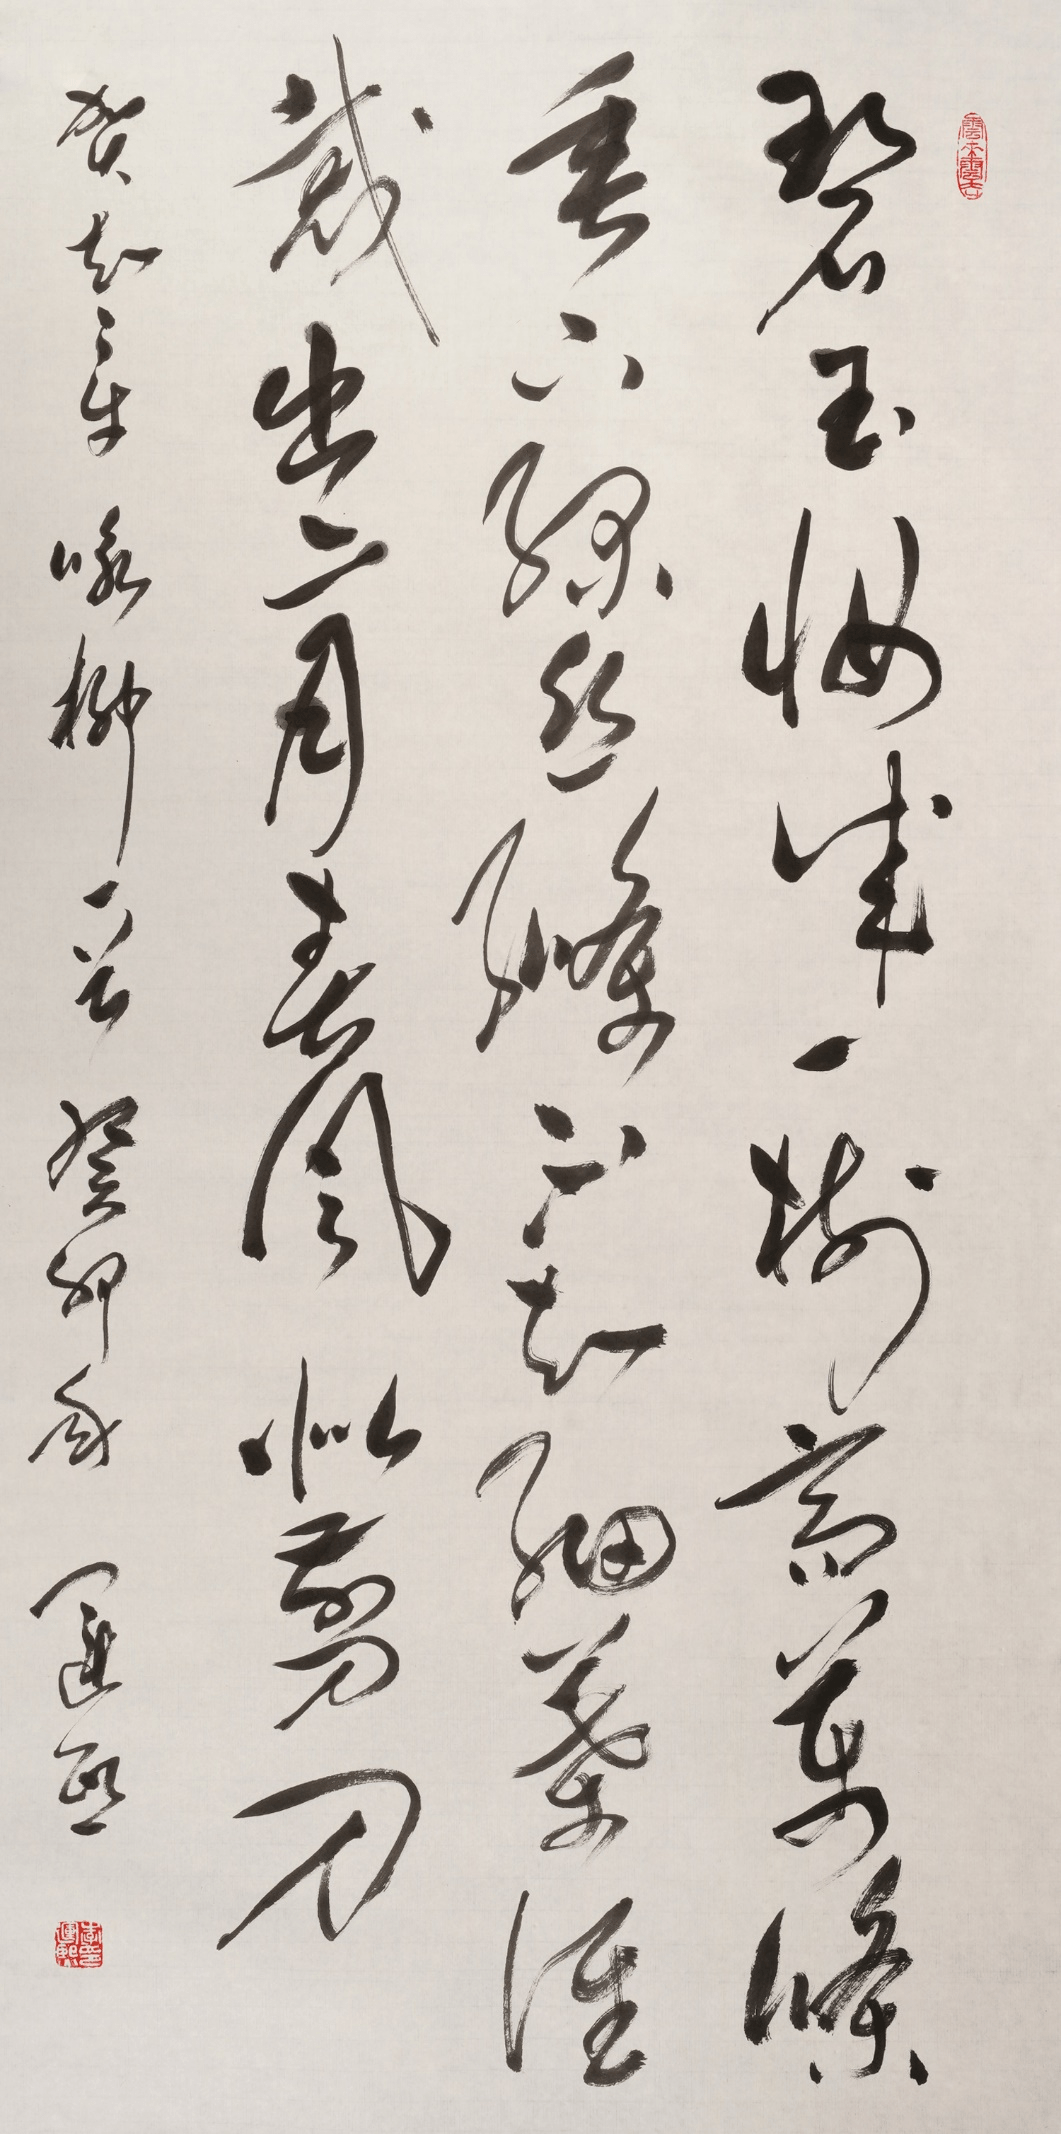 碧玉妝成一樹高萬條
垂下綠絲絛不知細葉誰
裁出二月春風似剪刀
賀知章 詠柳一首 癸卯 運熙